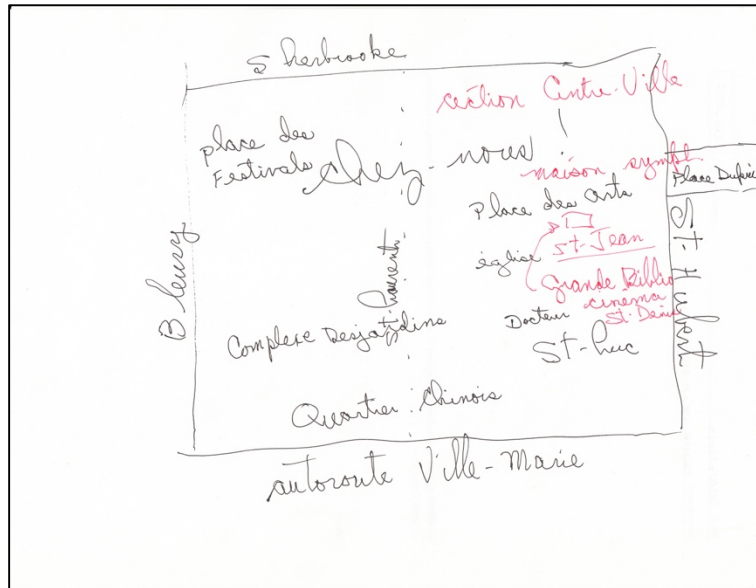 Sherbrooke
section Centre-Ville
Place des
Festivals
chez-nous
maison symph.
Place Dupuis
Place des Arts
Bleury
St-Laurent
église St-Jean
St-Hubert
Grande Biblio
cinema
St-Denis
Docteur
Complexe Desjardins
St-Luc
Quartier Chinois
autoroute Ville-Marie